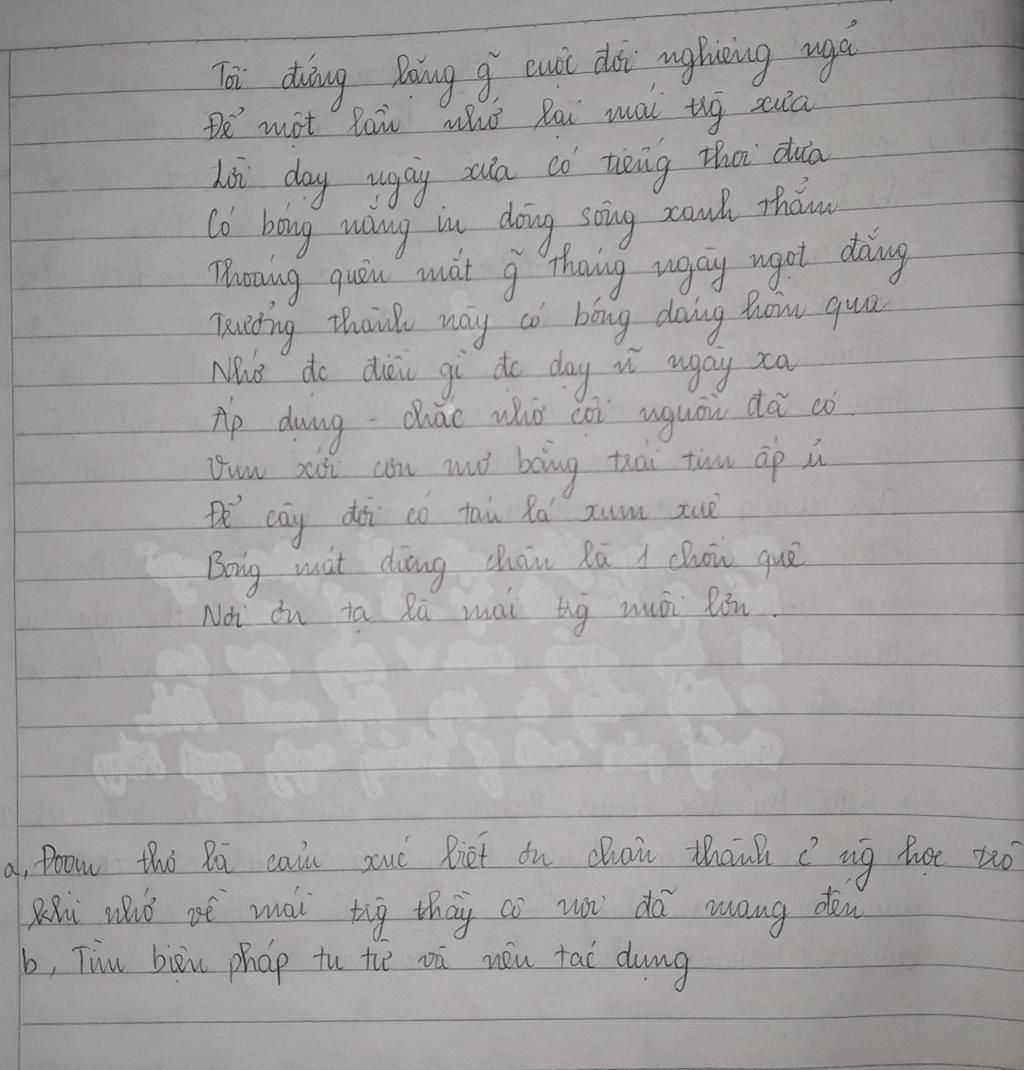 Tôi đứng lặng g̃ cuộc đời nghiêng ngả
Để một lần nhớ lại mái trg̀ xưa
Lời dạy ngày xưa có tiếng thoi đưa
Có bóng nắng in dòng sông xanh thẳm
Thoáng quên mất g̃ tháng ngày ngọt đắng
Trưởng thành này có bóng dáng hôm qua
Nhớ đc điều gì đc dạy n̄ ngày xa
Áp dụng - chắc nhờ cội nguồn đã có.
Vun xới cơn mơ bằng trái tim ấp ủ
Để cây đời có tán lá xum xuê
Bóng mát dừng chân là 1 chốn quê
Nơi ơn tạ là mái trg̀ nuôi lớn.
a, Đoạn thơ là cảm xúc biết ơn chân thành c̉ ng̀ học trò
khi nhớ về mái trg̀ thầy cô nơi đã mang đến
b, Tìm biện pháp tu từ và nêu tác dụng